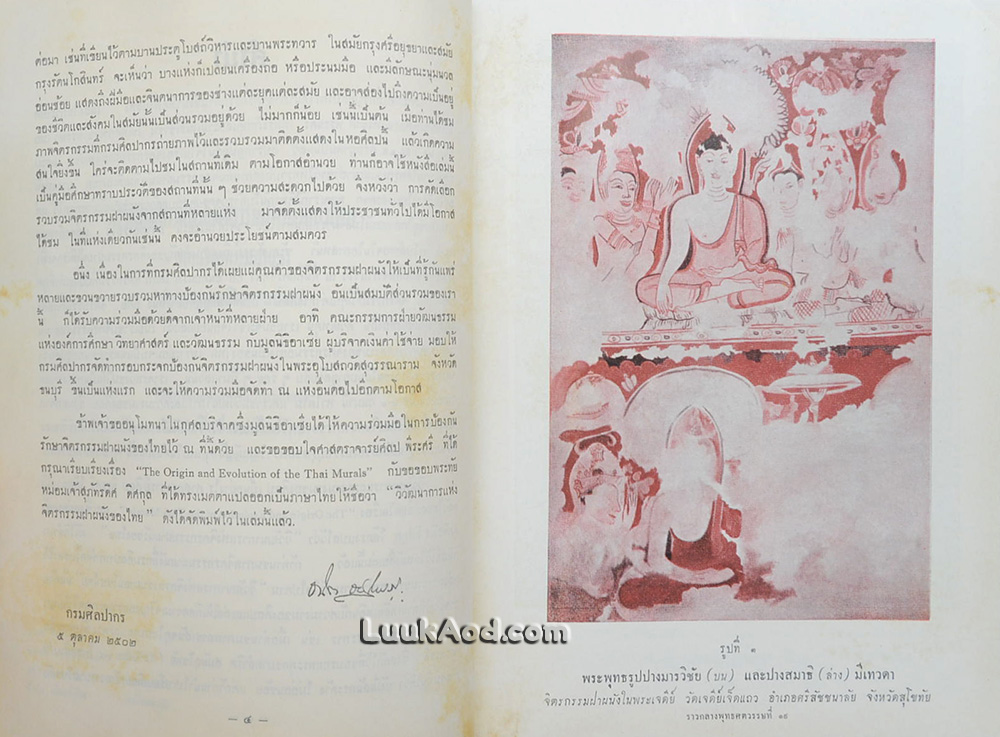 ต่อมา เช่นที่เขียนไว้ตามบานประตูโบสถ์วิหารและบานพระทวาร ในสมัยกรุงศรีอยุธยาและสมัย
กรุงรัตนโกสินทร์ จะเห็นว่า บางแห่งก็เปลี่ยนเครื่องถือ หรือประนมมือ และมีลักษณะนุ่มนวล
อ่อนช้อย แสดงถึงฝีมือและจินตนาการของช่างแต่ละยุคแต่ละสมัย และอาจส่องไปถึงความเป็นอยู่
ของชีวิตและสังคมในสมัยนั้นเป็นส่วนรวมอยู่ด้วย ไม่มากก็น้อย เช่นนี้เป็นต้น เมื่อท่านได้ชม
ภาพจิตรกรรมที่กรมศิลปากรถ่ายภาพไว้และรวบรวมมาติดตั้งแสดงในหอศิลปนี้ แล้วเกิดความ
สนใจยิ่งขึ้น ใคร่จะติดตามไปชมในสถานที่เดิม ตามโอกาสอำนวย ท่านก็อาจใช้หนังสือเล่มนี้
เป็นคู่มือศึกษาทราบประวัติของสถานที่นั้น ๆ ช่วยความสะดวกไปด้วย จึงหวังว่า การคัดเลือก
รวบรวมจิตรกรรมฝาผนังจากสถานที่หลายแห่ง มาจัดตั้งแสดงให้ประชาชนทั่วไปได้มีโอกาส
ได้ชม ในที่แห่งเดียวกันเช่นนี้ คงจะอำนวยประโยชน์ตามสมควร
อนึ่ง เนื่องในการที่กรมศิลปากรได้เผยแผ่คุณค่าของจิตรกรรมฝาผนังให้เป็นที่รู้กันแพร่
หลายและขวนขวายรวบรวมหาทางป้องกันรักษาจิตรกรรมฝาผนัง อันเป็นสมบัติส่วนรวมของเรา
นี้ ก็ได้รับความร่วมมือด้วยดีจากเจ้าหน้าที่หลายฝ่าย อาทิ คณะกรรมการฝ่ายวัฒนธรรม
แห่งองค์การศึกษา วิทยาศาสตร์ และวัฒนธรรม กับมูลนิธิอาเซีย ผู้บริจาคเงินค่าใช้จ่าย มอบให้
กรมศิลปากรจัดทำกรอบกระจกป้องกันจิตรกรรมฝาผนังในพระอุโบสถวัดสุวรรณาราม จังหวัด
ธนบุรี ขึ้นเป็นแห่งแรก และจะให้ความร่วมมือจัดทำ ณ แห่งอื่นต่อไปอีกตามโอกาส
ข้าพเจ้าขออนุโมทนาในกุศลบริจาคซึ่งมูลนิธิอาเซียได้ให้ความร่วมมือในการป้องกัน
รักษาจิตรกรรมฝาผนังของไทยไว้ ณ ที่นี้ด้วย และขอขอบใจศาสตราจารย์ศิลป พีระศรี ที่ได้
กรุณาเรียบเรียงเรื่อง "The Origin and Evolution of the Thai Murals" กับขอขอบพระทัย
หม่อมเจ้าสุภัทรดิศ ดิศกุล ที่ได้ทรงเมตตาแปลออกเป็นภาษาไทยให้ชื่อว่า "วิวัฒนาการแห่ง
จิตรกรรมฝาผนังของไทย" ดังได้จัดพิมพ์ไว้ในเล่มนี้แล้ว.
กรมศิลปากร
๕ ตุลาคม ๒๕๐๒
— ๔ —
LuukAod.com
รูปที่ ๑
พระพุทธรูปปางมารวิชัย (บน) และปางสมาธิ (ล่าง) มีเทวดา
จิตรกรรมฝาผนังในพระเจดีย์ วัดเจดีย์เจ็ดแถว อำเภอศรีสัชชนาลัย จังหวัดสุโขทัย
ราวกลางพุทธศตวรรษที่ ๑๙